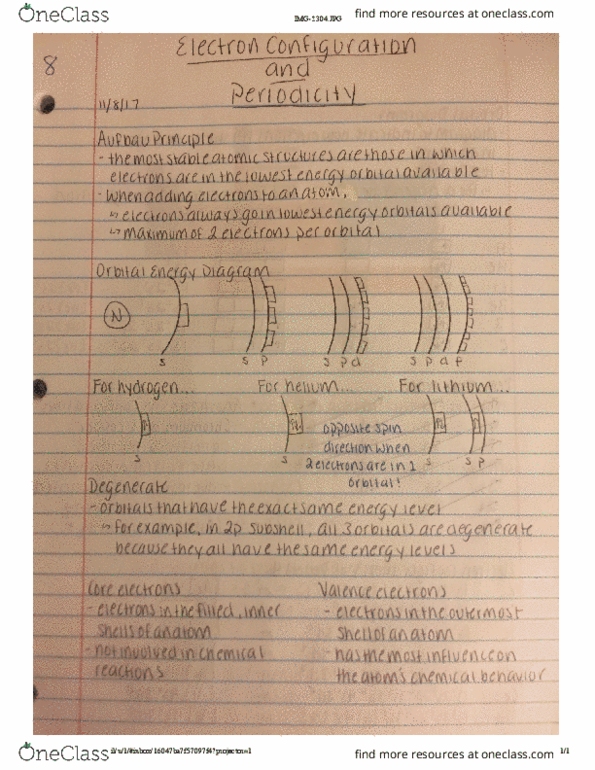 OneClass
IMG-1304.JPG
find more resources at oneclass.com
8
Electron Configuration
and
Periodicity
11/8/17
Aufbau Principle
- the most stable atomic structures are those in which
electrons are in the lowest energy orbital available
- when adding electrons to an atom,
↳ electrons always go in lowest energy orbitals available
↳ maximum of 2 electrons per orbital
Orbital Energy Diagram
N
s s p s p d s p d f
For hydrogen... For helium... For lithium...
s s s s p
opposite spin
direction when
2 electrons are in 1
orbital!
Degenerate
- orbitals that have the exact same energy level
↳ for example, in 2p subshell, all 3 orbitals are degenerate
because they all have the same energy levels
Core electrons
- electrons in the filled, inner
shells of an atom
- not involved in chemical
reactions
Valence electrons
- electrons in the outermost
shell of an atom
- has the most influence on
the atom's chemical behavior
OneClass
1/1
find more resources at oneclass.com